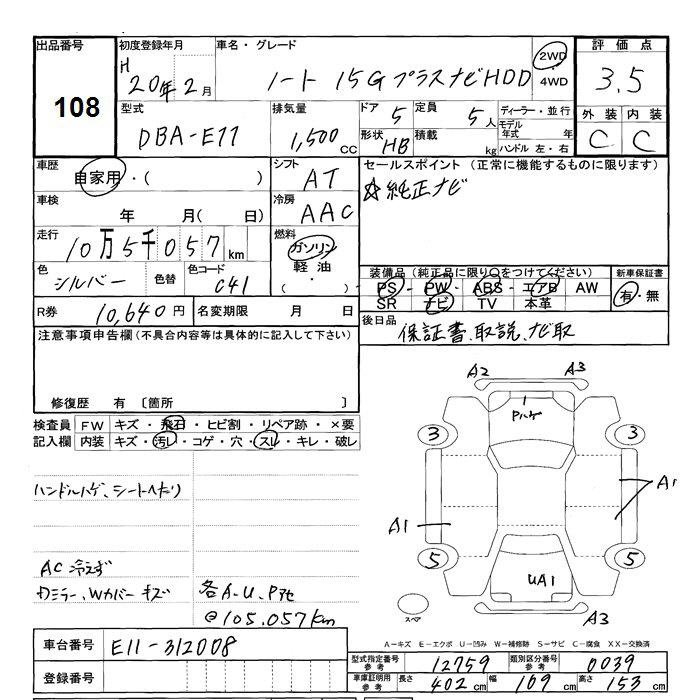 出品番号
108
初度登録年月
H
20年2月
車名・グレード
ノート 15G プラスナビHDD
2WD
4WD
評価点
3.5
型式
DBA-E11
排気量
1,500CC
ドア 5
定員 5人
形状 HB
積載 kg
ディーラー・並行
モデル年式 年
ハンドル 左・右
外装 内装
C C
車歴
自家用・( )
シフト
AT
セールスポイント (正常に機能するものに限ります)
☆純正ナビ
車検
年 月( 日)
冷房
AAC
走行
10万5千057km
燃料
ガソリン
軽油
・( )
色
シルバー
色替
色コード
C41
装備品 (純正品に限り○をつけてください)
PS・PW・ABS・エアB AW
SR ナビ TV 本革
新車保証書
有・無
R券 10,640円
名変期限 月 日
後日品
保証書、取説、ナビ取
注意事項申告欄(不具合内容等は具体的に記入して下さい)
修復歴 有〔箇所 〕
検査員
記入欄
FW キズ・飛石・ヒビ割・リペア跡・×要
内装 キズ・汚レ・コゲ・穴・スレ・キレ・破レ
ハンドルハゲ、シートへたり
AC 冷えず
ワミラー、Wカバー キズ
各A-U、Pアセ
@105,057km
A2 A3
Pハゲ
3 3
A1
A1
5 5
UA1
スペア
A3
A-キズ E-エクボ U-凹み W-補修跡 S-サビ C-腐食 XX-交換済
車台番号 E11-312008
登録番号
型式指定番号
参考
12759
類別区分番号
参考
0039
車庫証明用
参考
長さ 402cm
幅 169cm
高さ 153cm